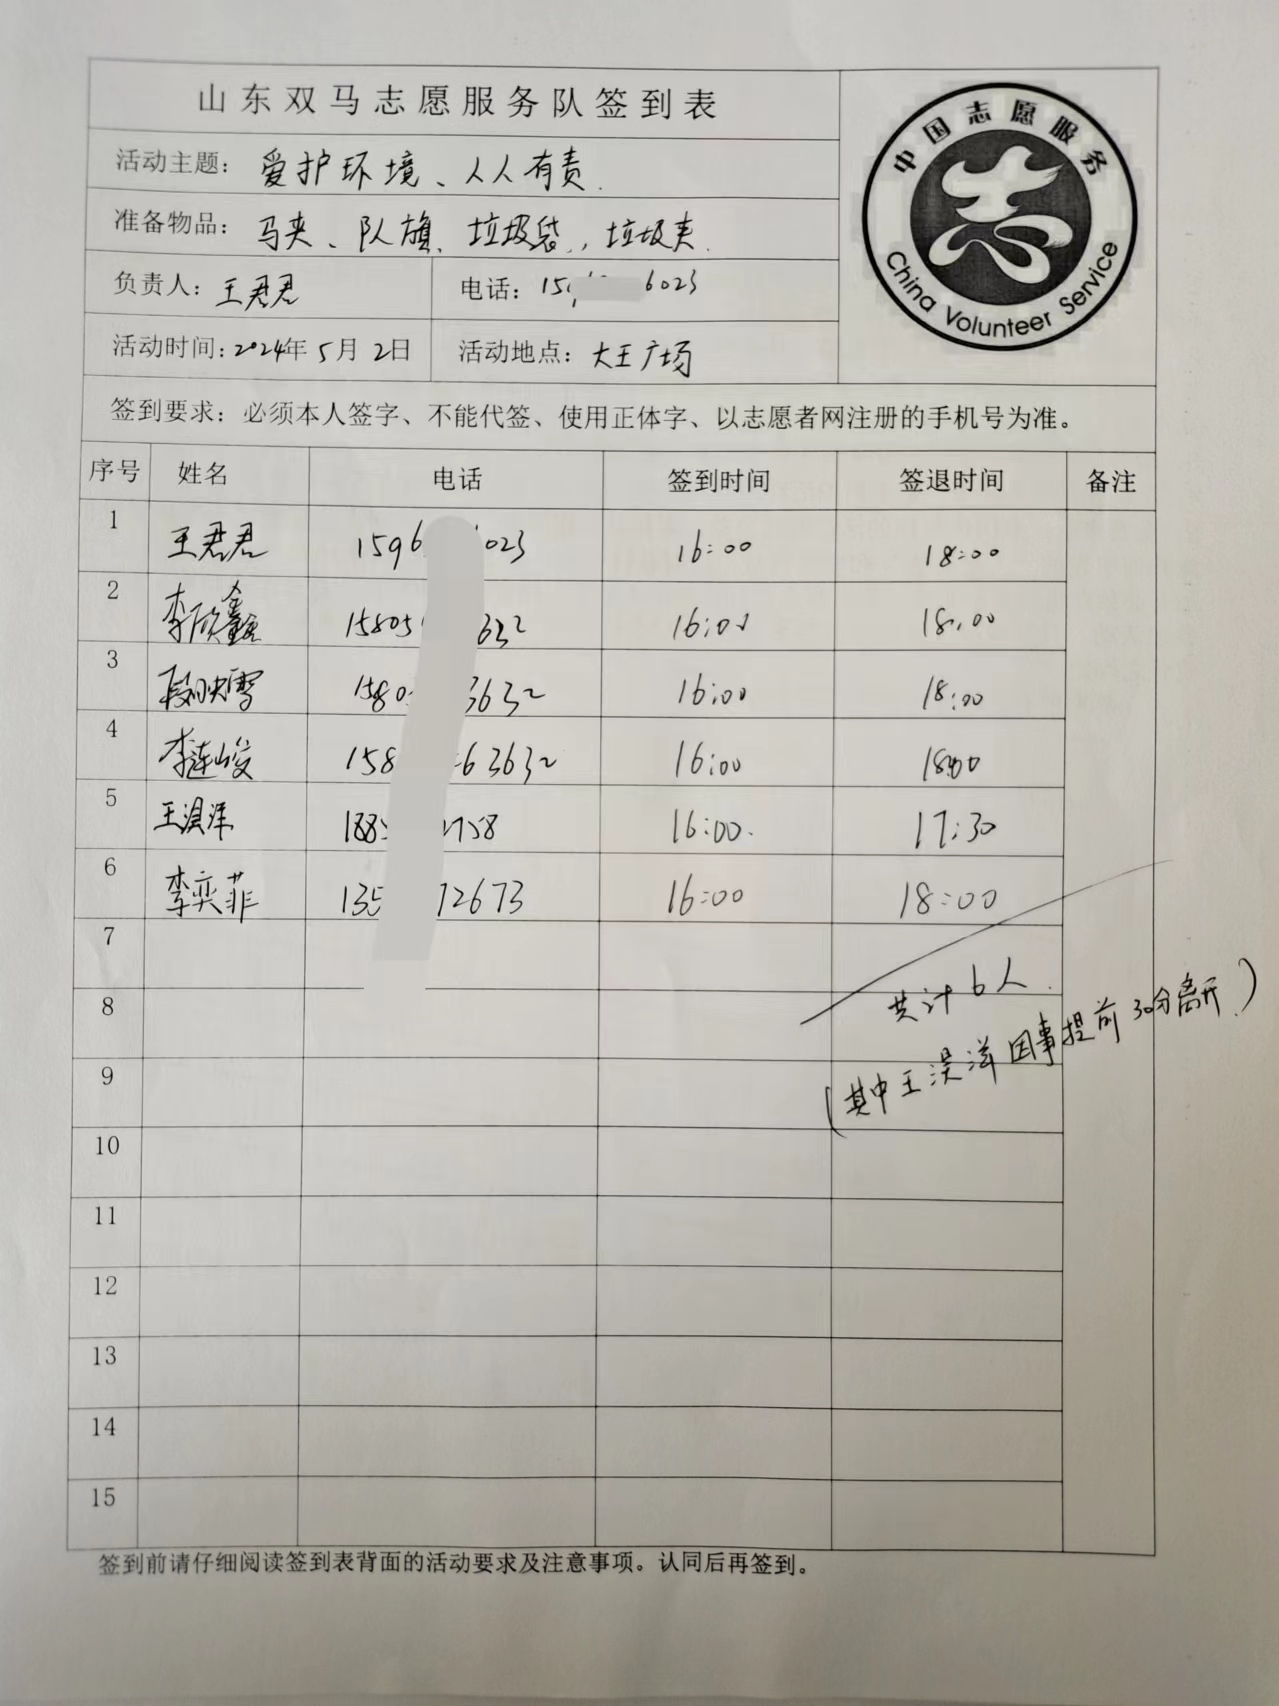 山东双马志愿服务队签到表
中国志愿服务
China Volunteer Service
活动主题：爱护环境、人人有责.
准备物品：马夹、队旗、垃圾袋,垃圾夹.
负责人：王君君 电话：15 6023
活动时间：2024年5月2日 活动地点：大王广场
签到要求：必须本人签字、不能代签、使用正体字、以志愿者网注册的手机号为准。
序号 姓名 电话 签到时间 签退时间 备注
1 王君君 1596 023 16:00 18:00
2 李欣鑫 15805 632 16:00 18:00
3 段映雪 1580 3632 16:00 18:00
4 李连峻 158 63632 16:00 1800
5 王淏洋 1885 2758 16:00. 17:30
6 李奕菲 135 72673 16:00 18:00
7
共计6人.
8
(其中王淏洋因事提前30分离开.)
9
10
11
12
13
14
15
签到前请仔细阅读签到表背面的活动要求及注意事项。认同后再签到。